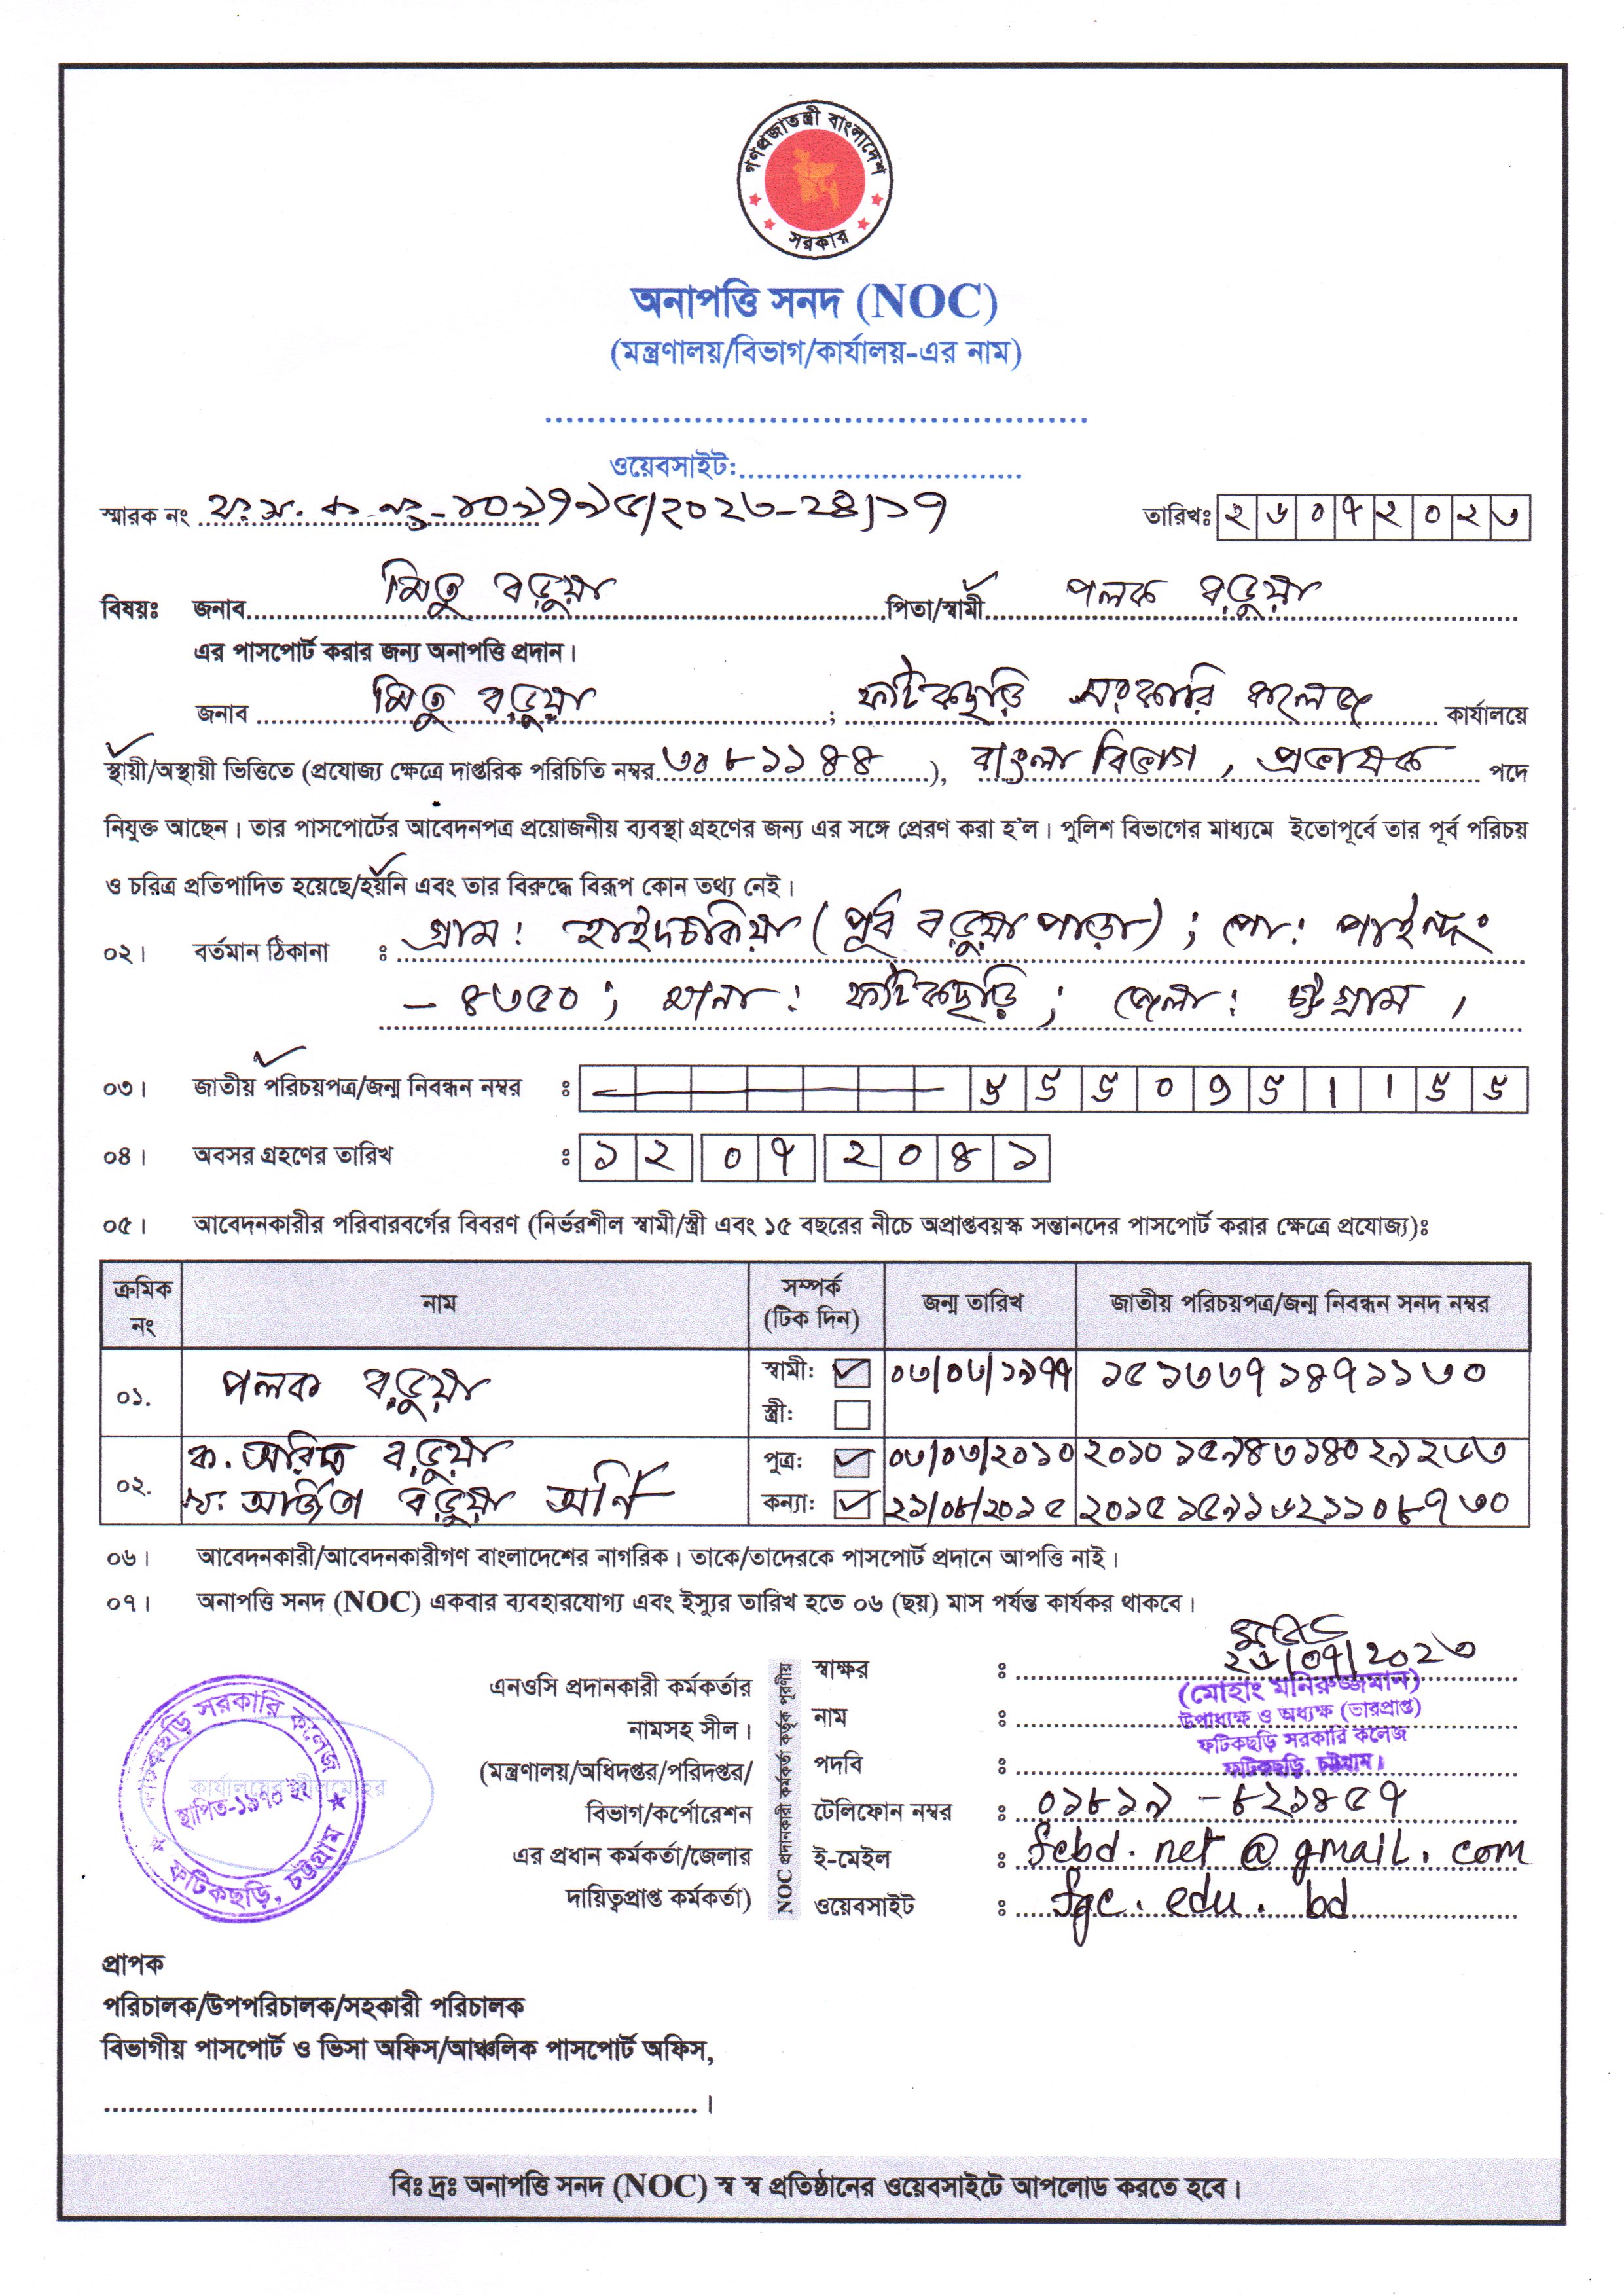 গণপ্রজাতন্ত্রী বাংলাদেশ
সরকার
অনাপত্তি সনদ (NOC)
(মন্ত্রণালয়/বিভাগ/কার্যালয়-এর নাম)
ওয়েবসাইট:
স্মারক নং ফ.স.ক.নং-১০১৭১৫/২০২৩-২৪/১৭ তারিখঃ ২৬০৭২০২৩
বিষয়ঃ জনাব মিতু বড়ুয়া পিতা/স্বামী পলক বড়ুয়া
এর পাসপোর্ট করার জন্য অনাপত্তি প্রদান।
জনাব মিতু বড়ুয়া ; ফটিকছড়ি সরকারি কলেজ কার্যালয়ে
স্থায়ী/অস্থায়ী ভিত্তিতে (প্রযোজ্য ক্ষেত্রে দাপ্তরিক পরিচিতি নম্বর ৩০৮১১৪৪), বাংলা বিভাগ, প্রভাষক পদে
নিযুক্ত আছেন। তার পাসপোর্টের আবেদনপত্র প্রয়োজনীয় ব্যবস্থা গ্রহণের জন্য এর সঙ্গে প্রেরণ করা হ'ল। পুলিশ বিভাগের মাধ্যমে ইতোপূর্বে তার পূর্ব পরিচয়
ও চরিত্র প্রতিপাদিত হয়েছে/হয়নি এবং তার বিরুদ্ধে বিরূপ কোন তথ্য নেই।
০২। বর্তমান ঠিকানা ঃ গ্রাম: হাইদচকিয়া (পূর্ব বড়ুয়া পাড়া); পো: পাইন্দং
- ৪৩৫০; থানা: ফটিকছড়ি; জেলা: চট্টগ্রাম,
০৩। জাতীয় পরিচয়পত্র/জন্ম নিবন্ধন নম্বর ঃ
০৪। অবসর গ্রহণের তারিখ ঃ ১২ ০৭ ২০৪১
০৫। আবেদনকারীর পরিবারবর্গের বিবরণ (নির্ভরশীল স্বামী/স্ত্রী এবং ১৫ বছরের নীচে অপ্রাপ্তবয়স্ক সন্তানদের পাসপোর্ট করার ক্ষেত্রে প্রযোজ্য)ঃ
ক্রমিক নং নাম সম্পর্ক (টিক দিন) জন্ম তারিখ জাতীয় পরিচয়পত্র/জন্ম নিবন্ধন সনদ নম্বর
০১. পলক বড়ুয়া স্বামী: ০৩/০৩/১৯৭৭ ১৫১৩৩৭১৪৭১১৩০
স্ত্রী:
০২. ক. অরিত্র বড়ুয়া পুত্র: ০৩/০৩/২০১০ ২০১০১৫৯৪৩১৪০২৯২৬৩
খ. অর্জিতা বড়ুয়া অর্নি কন্যা: ২১/০৮/২০১৫ ২০১৫১৫৯১৬২১১০৮৭৩০
০৬। আবেদনকারী/আবেদনকারীগণ বাংলাদেশের নাগরিক। তাকে/তাদেরকে পাসপোর্ট প্রদানে আপত্তি নাই।
০৭। অনাপত্তি সনদ (NOC) একবার ব্যবহারযোগ্য এবং ইস্যুর তারিখ হতে ০৬ (ছয়) মাস পর্যন্ত কার্যকর থাকবে।
ফটিকছড়ি সরকারি কলেজ
স্থাপিত-১৯৭০ ইং
কার্যালয়ের সীলমোহর
ফটিকছড়ি, চট্টগ্রাম
এনওসি প্রদানকারী কর্মকর্তার
নামসহ সীল।
(মন্ত্রণালয়/অধিদপ্তর/পরিদপ্তর/
বিভাগ/কর্পোরেশন
এর প্রধান কর্মকর্তা/জেলার
দায়িত্বপ্রাপ্ত কর্মকর্তা)
NOC প্রদানকারী কর্মকর্তা কর্তৃক পূরণীয়
স্বাক্ষর ঃ ২৬/০৭/২০২৩
(মোহাঃ মনিরুজ্জমান)
নাম ঃ উপাধ্যক্ষ ও অধ্যক্ষ (ভারপ্রাপ্ত)
ফটিকছড়ি সরকারি কলেজ
পদবি ঃ ফটিকছড়ি, চট্টগ্রাম।
টেলিফোন নম্বর ঃ ০১৮১৯-৮২১৪৫৭
ই-মেইল ঃ fcbd.net@gmail.com
ওয়েবসাইট ঃ fgc.edu.bd
প্রাপক
পরিচালক/উপপরিচালক/সহকারী পরিচালক
বিভাগীয় পাসপোর্ট ও ভিসা অফিস/আঞ্চলিক পাসপোর্ট অফিস,
।
বিঃ দ্রঃ অনাপত্তি সনদ (NOC) স্ব স্ব প্রতিষ্ঠানের ওয়েবসাইটে আপলোড করতে হবে।